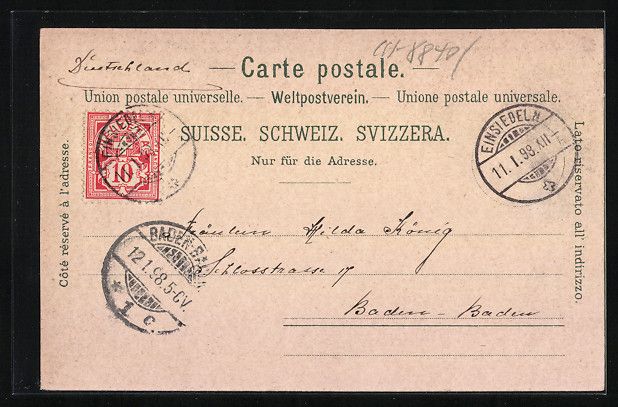 Deutschland
— Carte postale. —
Union postale universelle. — Weltpostverein. — Unione postale universale.
SUISSE. SCHWEIZ. SVIZZERA.
Nur für die Adresse.
Côté réservé à l'adresse.
Lato riservato all' indirizzo.
10
EINSIEDELN
11.1.98.XII
BADEN-BADEN
12.1.98.5-6V.
* 1 c
Fräulein Hilda König
Schlosstrasse 17
Baden-Baden